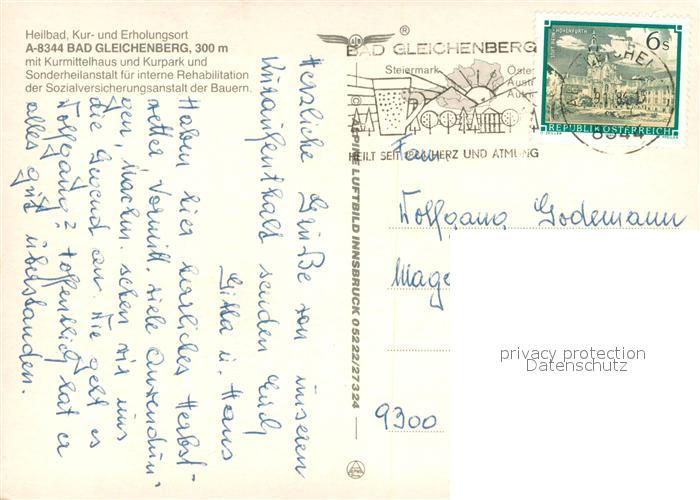 Heilbad, Kur- und Erholungsort
A-8344 BAD GLEICHENBERG, 300 m
mit Kurmittelhaus und Kurpark und
Sonderheilanstalt für interne Rehabilitation
der Sozialversicherungsanstalt der Bauern.
Herzliche Grüße von unserem
Kuraufenthalt senden Euch
Gitta u. Hans
Haben hier herrliches Herbst-
wetter Vormitt. viele Anwendun-
gen, Nachm. sehen wir uns
die Gegend an. Wie geht es
Wolfgang? Hoffentlich hat er
alles gut überstanden.
ALPINE LUFTBILD INNSBRUCK 05222/27324
®
BAD GLEICHENBERG
Steiermark
HEILT SEIT HERZ UND ATMUNG
6s
REPUBLIK ÖSTERREICH
8344
Wolfgang Godemann
Mage
9300
privacy protection
Datenschutz